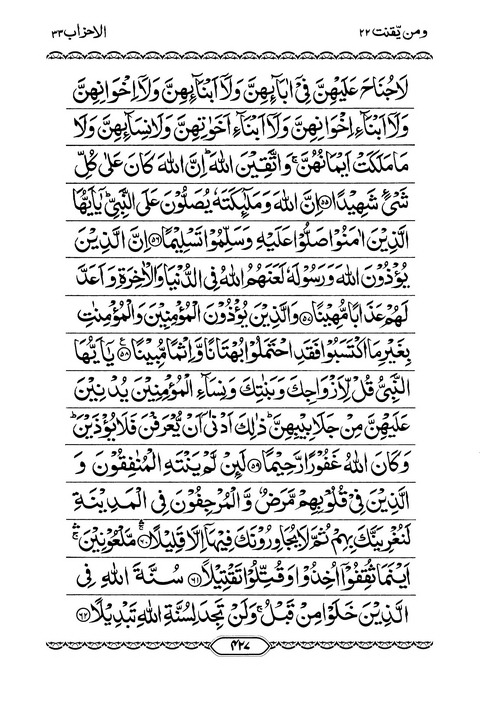 ومن يّقنت ٢٢
الاحزاب ٣٣
لَا جُنَاحَ عَلَيْهِنَّ فِيْٓ اٰبَآئِهِنَّ وَلَآ اَبْنَآئِهِنَّ وَلَآ اِخْوَانِهِنَّ
وَلَآ اَبْنَآءِ اِخْوَانِهِنَّ وَلَآ اَبْنَآءِ اَخَوٰتِهِنَّ وَلَا نِسَآئِهِنَّ وَلَا
مَا مَلَكَتْ اَيْمَانُهُنَّ ۚ وَاتَّقِيْنَ اللّٰهَ ؕ اِنَّ اللّٰهَ كَانَ عَلٰى كُلِّ
شَيْءٍ شَهِيْدًا ﴿٥٥﴾ اِنَّ اللّٰهَ وَمَلٰٓئِكَتَهٗ يُصَلُّوْنَ عَلَى النَّبِيِّ ؕ يٰٓاَيُّهَا
الَّذِيْنَ اٰمَنُوْا صَلُّوْا عَلَيْهِ وَسَلِّمُوْا تَسْلِيْمًا ﴿٥٦﴾ اِنَّ الَّذِيْنَ
يُؤْذُوْنَ اللّٰهَ وَرَسُوْلَهٗ لَعَنَهُمُ اللّٰهُ فِي الدُّنْيَا وَالْاٰخِرَةِ وَاَعَدَّ
لَهُمْ عَذَابًا مُّهِيْنًا ﴿٥٧﴾ وَالَّذِيْنَ يُؤْذُوْنَ الْمُؤْمِنِيْنَ وَالْمُؤْمِنٰتِ
بِغَيْرِ مَا اكْتَسَبُوْا فَقَدِ احْتَمَلُوْا بُهْتَانًا وَّاِثْمًا مُّبِيْنًا ﴿٥٨﴾ ع يٰٓاَيُّهَا
النَّبِيُّ قُلْ لِّاَزْوَاجِكَ وَبَنٰتِكَ وَنِسَآءِ الْمُؤْمِنِيْنَ يُدْنِيْنَ
عَلَيْهِنَّ مِنْ جَلَابِيْبِهِنَّ ؕ ذٰلِكَ اَدْنٰٓى اَنْ يُّعْرَفْنَ فَلَا يُؤْذَيْنَ ؕ
وَكَانَ اللّٰهُ غَفُوْرًا رَّحِيْمًا ﴿٥٩﴾ لَئِنْ لَّمْ يَنْتَهِ الْمُنٰفِقُوْنَ وَ
الَّذِيْنَ فِيْ قُلُوْبِهِمْ مَّرَضٌ وَّالْمُرْجِفُوْنَ فِي الْمَدِيْنَةِ
لَنُغْرِيَنَّكَ بِهِمْ ثُمَّ لَا يُجَاوِرُوْنَكَ فِيْهَآ اِلَّا قَلِيْلًا ﴿٦٠﴾ مَّلْعُوْنِيْنَ ۚ
اَيْنَمَا ثُقِفُوْٓا اُخِذُوْا وَقُتِّلُوْا تَقْتِيْلًا ﴿٦١﴾ سُنَّةَ اللّٰهِ فِي
الَّذِيْنَ خَلَوْا مِنْ قَبْلُ ۚ وَلَنْ تَجِدَ لِسُنَّةِ اللّٰهِ تَبْدِيْلًا ﴿٦٢﴾
٤٢٧